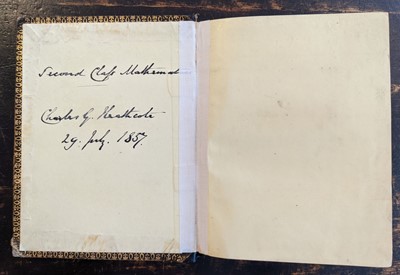 Second Class Mathemat
Charles G. Heathcote
29. July. 1857.